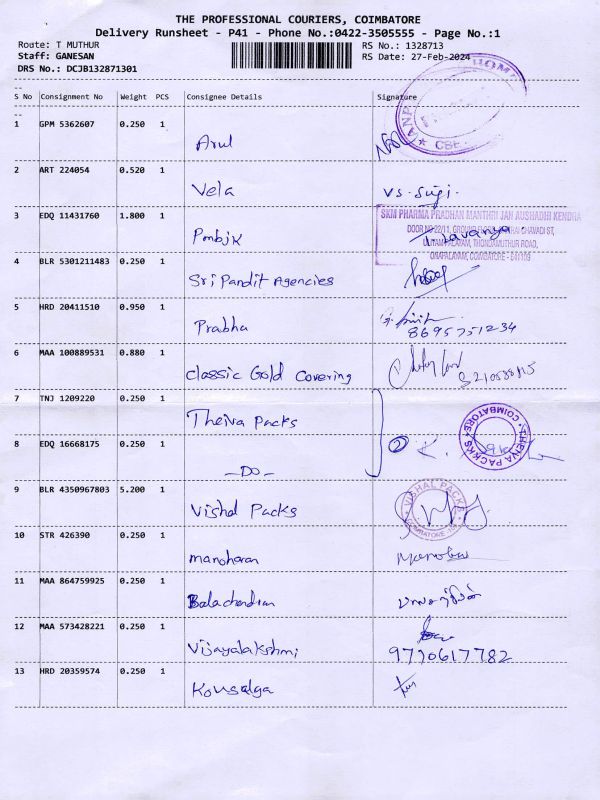 THE PROFESSIONAL COURIERS, COIMBATORE
Delivery Runsheet - P41 - Phone No.:0422-3505555 - Page No.:1
Route: T MUTHUR RS No.: 1328713
Staff: GANESAN RS Date: 27-Feb-2024
DRS No.: DCJB132871301
S No Consignment No Weight PCS Consignee Details Signature
1 GPM 5362607 0.250 1
Arul
CBE
2 ART 224054 0.520 1
Vela VS. Sugi.
3 EDQ 11431760 1.800 1
SKM PHARMA PRADHAN MANTHRI JAN AUSHADHI KENDRA
DOOR NO 22/11, CHAVADI ST,
Pmbjk
THONDAMUTHUR ROAD,
ONAPALAYAM, COIMBATORE - 641109
4 BLR 5301211483 0.250 1
Sri Pandit Agencies
5 HRD 20411510 0.950 1
Prabha 8695751234
6 MAA 100889531 0.880 1
Classic Gold Covering
7 TNJ 1209220 0.250 1
Theiva Packs
THEIVA PACKKS COIMBATORE
8 EDQ 16668175 0.250 1 2
-DO-
9 BLR 4350967803 5.200 1
Vishal Packs
VISHAL PACKS
10 STR 426390 0.250 1
manoharan
11 MAA 864759925 0.250 1
Balachandran
12 MAA 573428221 0.250 1
Vijayalakshmi 9790617782
13 HRD 20359574 0.250 1
Kousalya